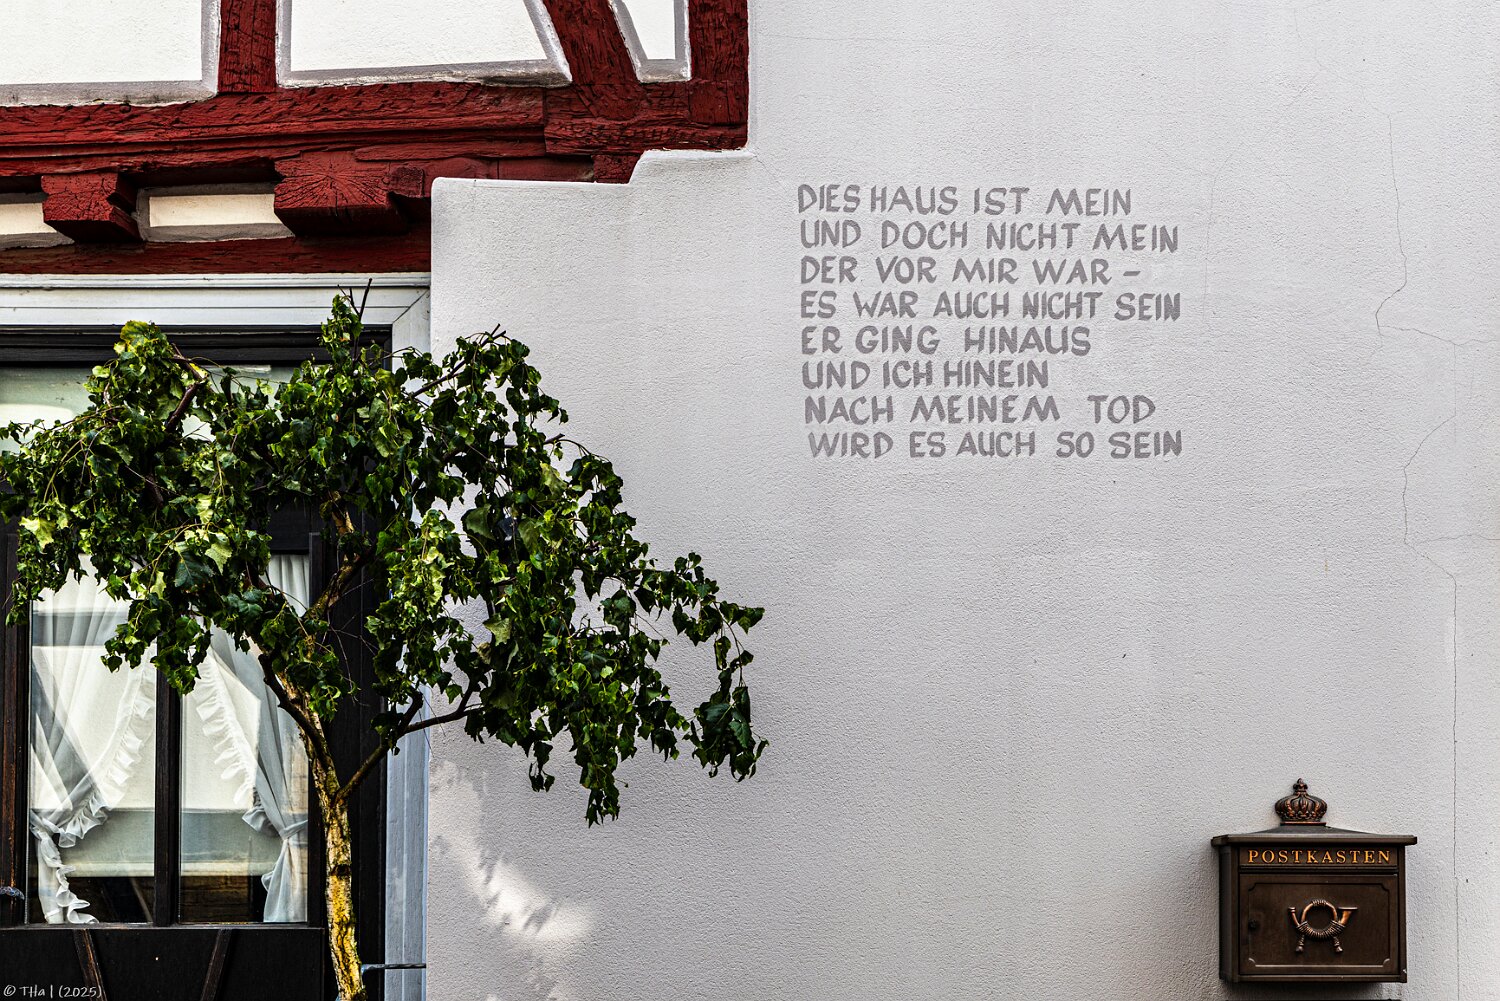 DIES HAUS IST MEIN
UND DOCH NICHT MEIN
DER VOR MIR WAR –
ES WAR AUCH NICHT SEIN
ER GING HINAUS
UND ICH HINEIN
NACH MEINEM TOD
WIRD ES AUCH SO SEIN
POSTKASTEN
© THa | (2025)